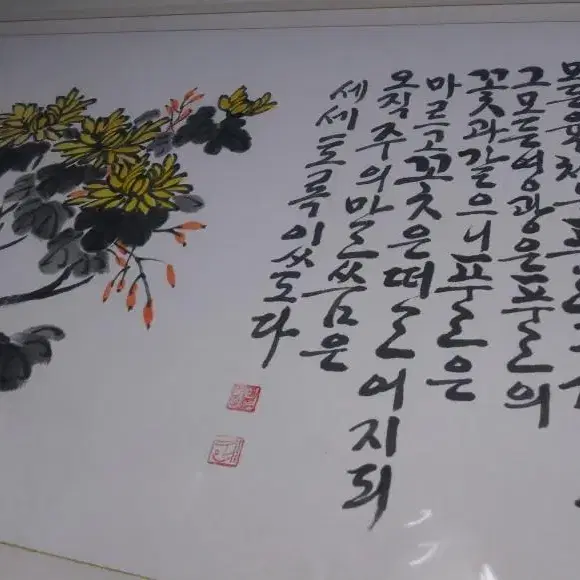 모든
그모든영광은풀의
꽃과같으니풀은
마르고꽃은떨어지되
오직주의말씀은
세세토록있도다